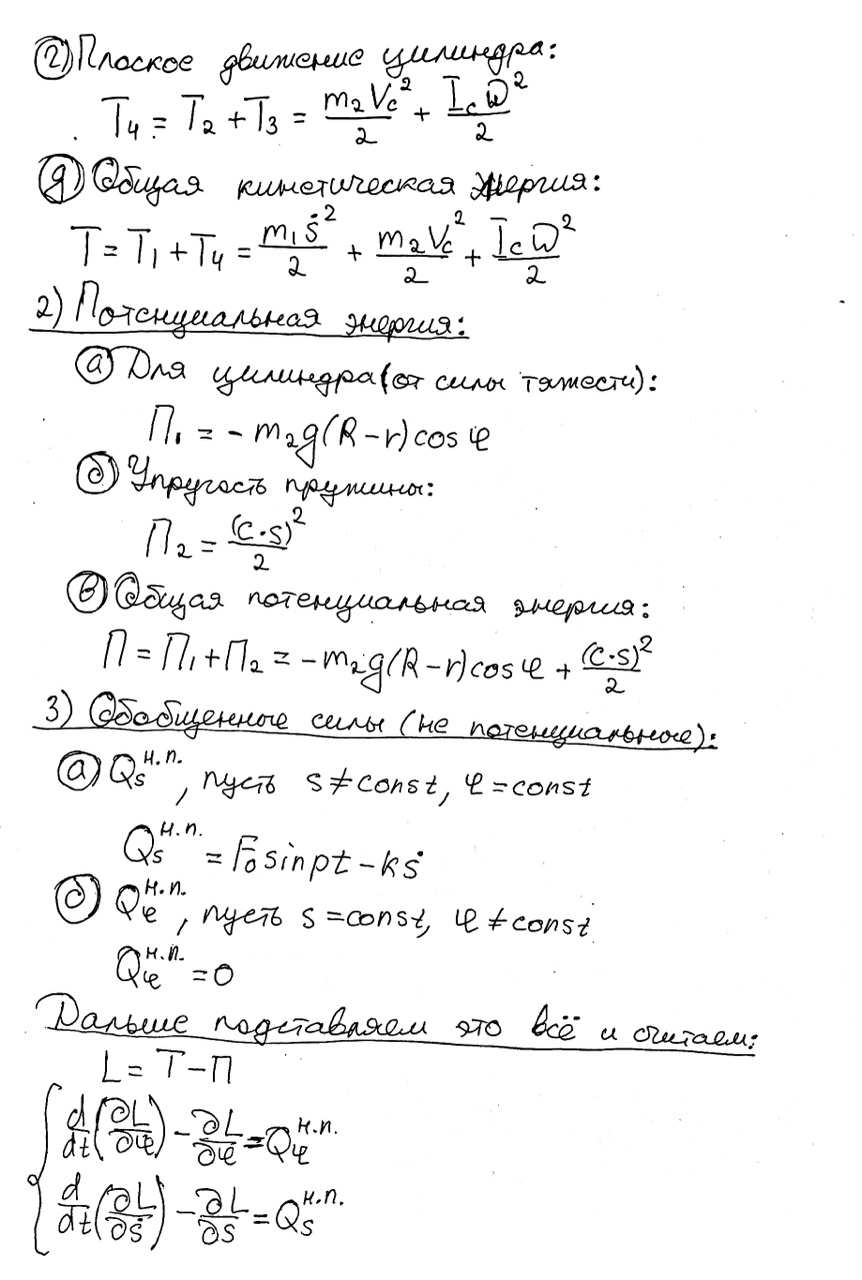 г) Плоское движение цилиндра:
T₄ = T₂ + T₃ = m₂Vc²/2 + Icω²/2
д) Общая кинетическая энергия:
T = T₁ + T₄ = m₁ṡ²/2 + m₂Vc²/2 + Icω²/2
2) Потенциальная энергия:
а) Для цилиндра (от силы тяжести):
П₁ = -m₂g(R-r)cosφ
б) Упругость пружины:
П₂ = (c·s)²/2
в) Общая потенциальная энергия:
П = П₁ + П₂ = -m₂g(R-r)cosφ + (c·s)²/2
3) Обобщенные силы (не потенциальные):
а) Qsᴴ·ᴾ·, пусть s ≠ const, φ = const
Qsᴴ·ᴾ· = F₀sinpt - kṡ
б) Qφᴴ·ᴾ·, пусть s = const, φ ≠ const
Qφᴴ·ᴾ· = 0
Дальше подставляем это всё и считаем:
L = T - П
d/dt(∂L/∂φ̇) - ∂L/∂φ = Qφᴴ·ᴾ·
d/dt(∂L/∂ṡ) - ∂L/∂s = Qsᴴ·ᴾ·